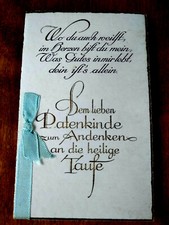 Wo du auch weilst,
im Herzen bist du mein,
Was Gutes in mir lebt,
dein ist's allein.
Dem lieben
Patenkinde
zum Andenken
an die heilige
Taufe